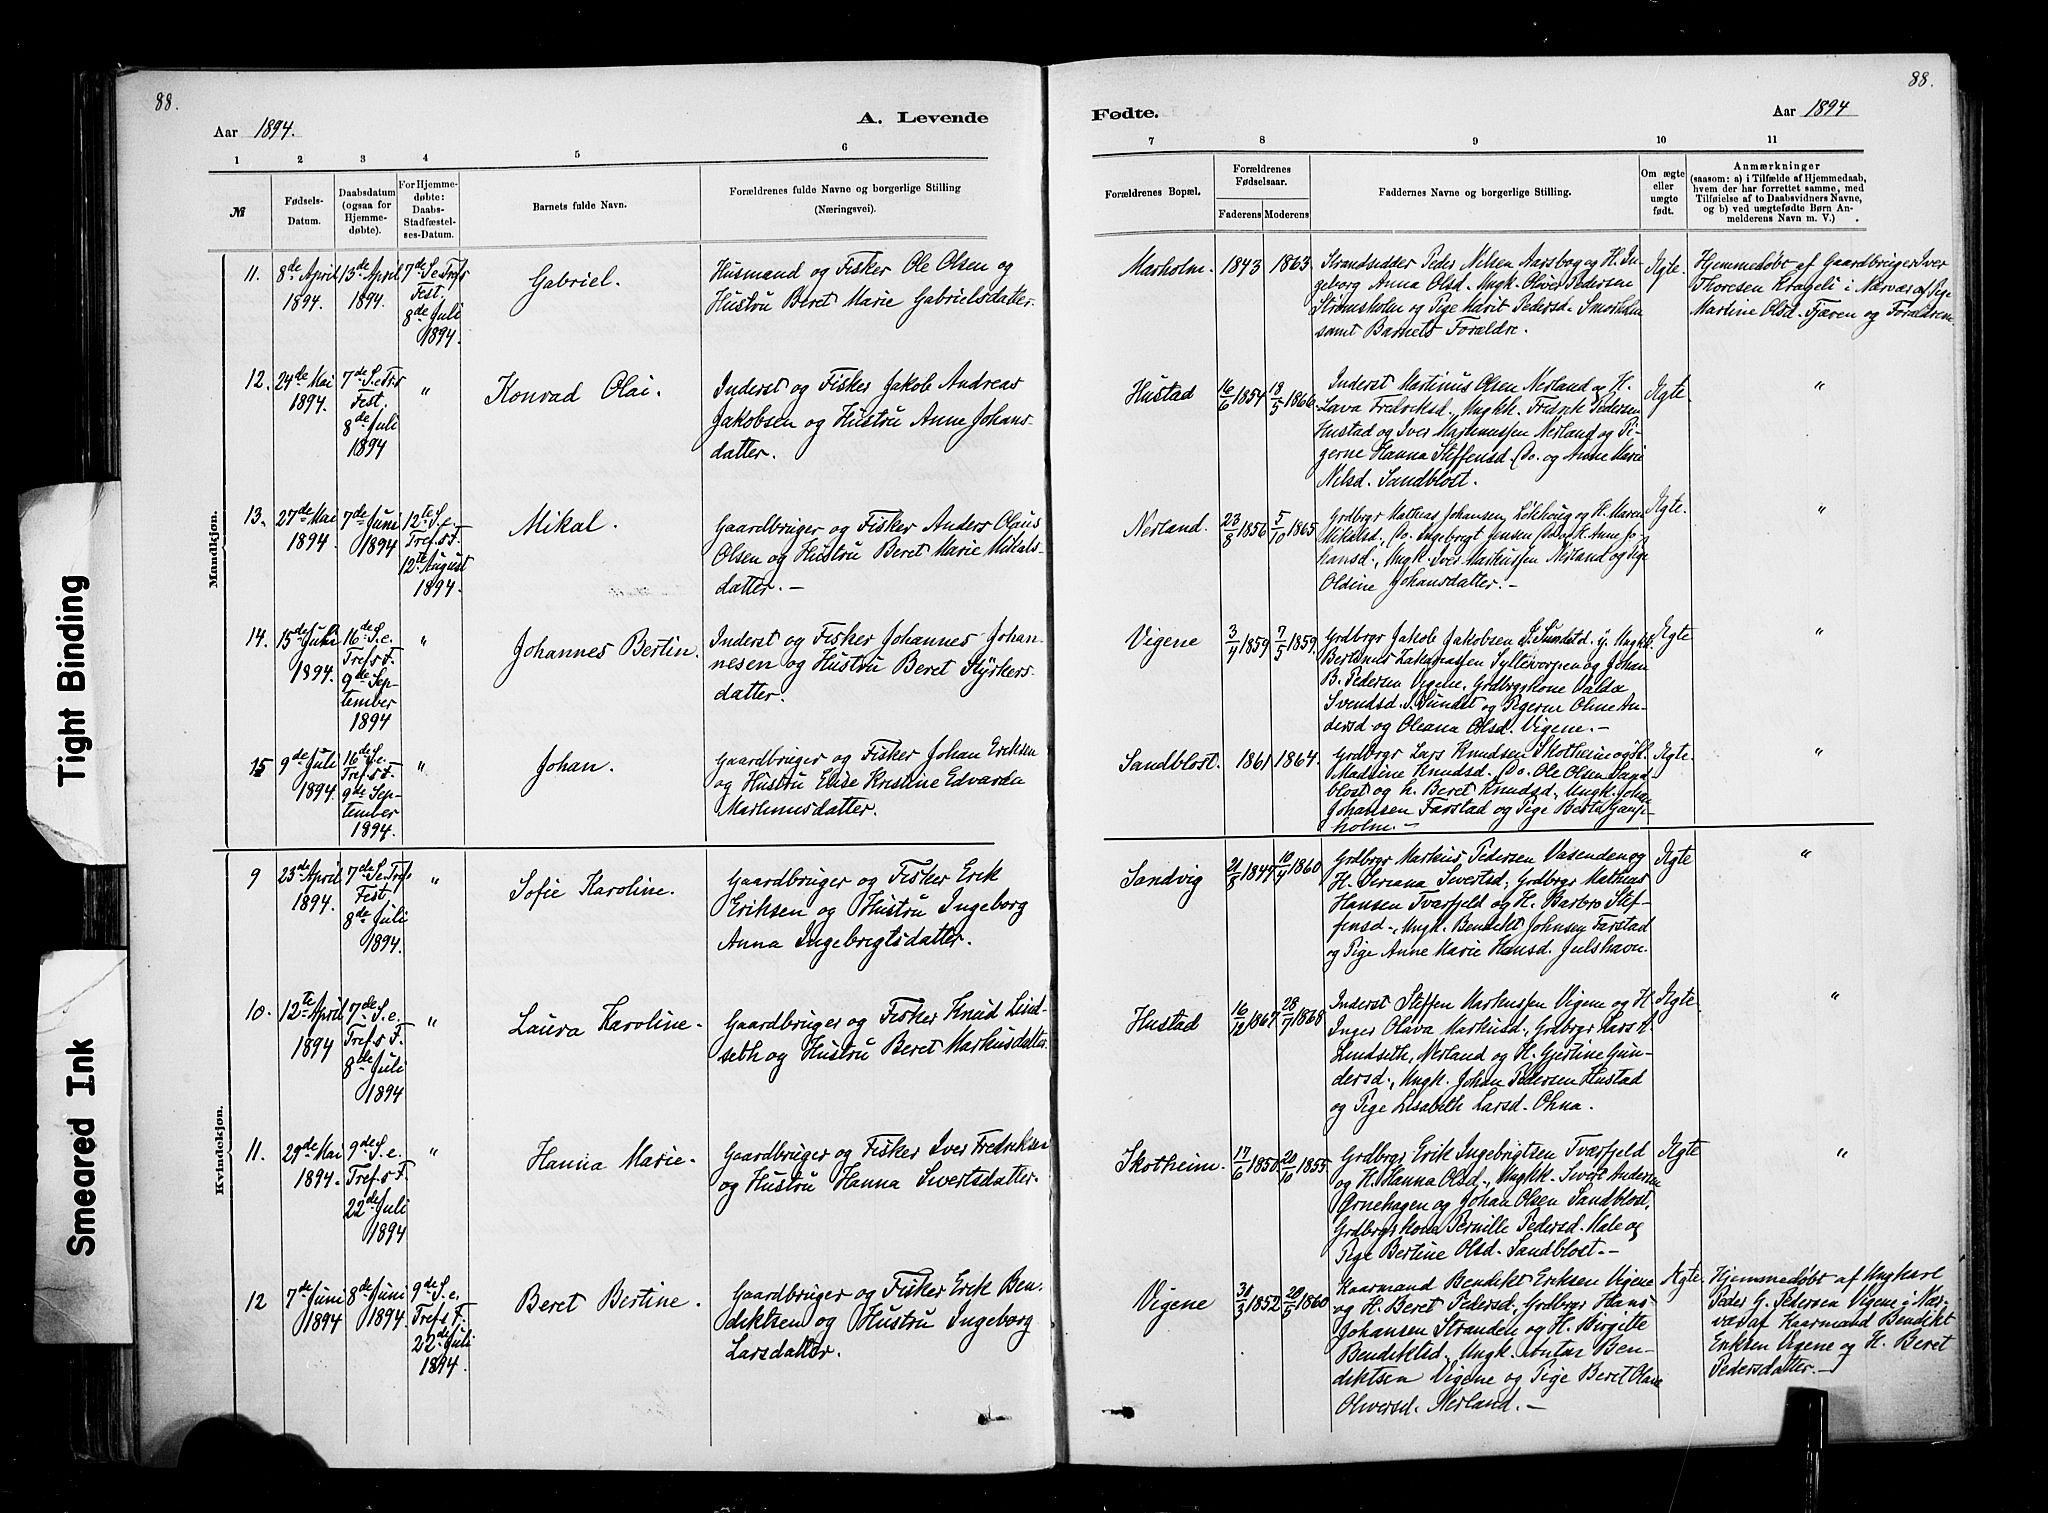 88.
Aar 1894.
A. Levende
1 2 3 4 5 6
№
Fødsels-
Datum.
Daabsdatum
(ogsaa for
Hjemme-
døbte).
For Hjemme-
døbte:
Daabs-
Stadfæstel-
ses-Datum.
Barnets fulde Navn.
Forældrenes fulde Navne og borgerlige Stilling
(Næringsvei).
Mandkjøn.
11.
8de April
1894.
13de April
1894.
7de S. e. Tref s
Fest.
8de Juli
1894.
Gabriel.
Husmand og Fisker Ole Olsen og
Hustru Beret Marie Gabrielsdatter.
12.
24de Mai
1894.
7de S. e. Tr s
Fest.
8de Juli
1894
"
Konrad Olai.
Inderst og Fisker Jakob Andreas
Jakobsen og Hustru Anne Johans-
datter.
13.
27de Mai
1894.
7de Juni
1894
12te S. e.
Tref. s F.
12te August
1894.
Mikal.
Gaardbruger og Fisker Anders Olaus
Olsen og Hustru Beret Marie Mikals-
datter. —
14.
15de Juli
1894.
16de S. e.
Tref s F.
9de Sep-
tember
1894
"
Johannes Bertin.
Inderst og Fisker Johannes Johan-
nesen og Hustru Beret Styrkers-
datter.
15
9de Juli
1894.
16de S. e.
Tref s F.
9de Sep-
tember
1894.
"
Johan.
Gaardbruger og Fisker Johan Eriksen
og Hustru Elise Kristine Edvarda
Martinusdatter.
Kvindekjøn.
9
23de April
1894.
7de S. e. Tref s
Fest,
8de Juli
1894.
"
Sofie Karoline.
Gaardbruger og Fisker Erik
Eriksen og Hustru Ingeborg
Anna Ingebrigtsdatter.
10.
12te April
1894
7de S. e.
Tref s F.
8de Juli
1894
"
Laura Karoline.
Gaardbruger og Fisker Knud Lind-
seth og Hustru Beret Markusdatter.
11.
29de Mai
1894.
9de S. e.
Tref s F.
22de Juli
1894
"
Hanna Marie.
Gaardbruger og Fisker Iver Fredriksen
og Hustru Hanna Sivertsdatter.
12
7de Juni
1894
8de Juni
1894.
9de S. e.
Tref s F.
22de Juli
1894.
Beret Bertine.
Gaardbruger og Fisker Erik Ben-
diktsen og Hustru Ingeborg
Larsdatter.
88.
Fødte.
Aar 1894
7 8 9 10 11
Forældrenes Bopæl.
Forældrenes
Fødselsaar.
Faderens Moderens
Faddernes Navne og borgerlige Stilling.
Om ægte
eller
uægte
født.
Anmærkninger
(saasom: a) i Tilfælde af Hjemmedaab,
hvem der har forrettet samme, med
Tilføielse af to Daabsvidners Navne,
og b) ved uægtefødte Børn An-
melderens Navn m. V.)
Marholm. 1843 1863.
Strandsidder Peder Nelsen Aarsbog og H. In-
geborg Anna Olsd. Ungk. Oliver Pedersen
Strømsholm og Pige Marit Pedersd. Smorholm
samt Barnets Forældre.
Ægte.
Hjemmedøbt af Gaardbruger Iver
Thoresen Krageli i Nærvær af Pige
Martine Olsd. Tjæren og Forældrene
Hustad 16/6 1854 18/5 1866.
Inderst Martinus Olsen Nerland og H.
Lava Fredriksd. Ungkk. Fredrik Pedersen
Hustad og Iver Markussen Nerland og Pi-
gerne Hanna Steffensd. Do. og Anne Marie
Nelsd. Sandblost.
Ægte.
"
Nerland. 23/8 1856 5/10 1865
Grdbrgr Mathias Johansen Løkhoug og H. Maren
Mikalsd, Do. Ingebrigt Jensen Do. og H. Anne Jo-
hansd., Ungk. Iver Markussen Nerland og Pige
Oldine Johansdatter. —
Ægte.
"
Vigene 3/4 1859 7/5 1859.
Grdbrgr Jakob Jakobsen S. Sundet d. y. Ungkk.
Bertinus Zakariassen Syltevorpen og Johan
B. Pedersen Vigene, Grdbrgskone Valda
Svendsd. S. Sundet og Pigerne Oline An-
dersd og Oleana Olsd. Vigene. —
Ægte
"
Sandblost. 1861 1864.
Grdbrgr Lars Knudsen Skotheim og H.
Madsine Knudsd. Do. Ole Olsen Sand-
blost og H. Beret Knudsd., Ungk. Johan
Johansen Farstad og Pige Berta Gaase-
holm. —
Ægte.
"
Sandvig 21/8 1849 10/4 1860
Grdbrgr Markus Pedersen Vasenden og
H. Seriana Sivertsd., Grdbrgr Mathias
Hansen Tværfjeld og H. Barbro Stef-
fensd., Ungk. Bendikt Johnsen Farstad
og Pige Anne Marie Hansd. Julshavn.
Ægte
"
Hustad 16/12 1867 28/7 1868
Inderst Steffen Markussen Vigene og H.
Inger Olava Markusd., Grdbrgr Lars K
Lindseth, Nerland og H. Gjertine Gun-
dersd., Ungk. Johan Pedersen Hustad
og Pige Lisabeth Larsd. Ohna.
Ægte.
"
Skotheim. 17/6 1850. 20/10 1855.
Grdbrgr Erik Ingebrigtsen Tværfjeld
og H. Hanna Olsd., Ungkk. Sivert Andersen
Ørnehagen og Johan Olsen Sandblost,
Grdbrgskona Pernille Pedersd. Male og
Pige Bertine Olsd. Sandblost. —
Ægte
"
Vigene 31/3 1852 20/5 1860
Kaarmand Bendikt Eriksen Vigene
og H. Beret Pedersd., Grdbrgr Hans
Johansen Stranden og H. Birgitte
Bendiktsd. Ungk. Bendiktsen Vigene og Pige Beret Olave
Oliversd. Nerland. —
Ægte.
Hjemmedøbt af Ungkarl
Peder G. Pedersen Vigene i Nær-
vær af Kaarmand Bendikt
Eriksen Vigene og H. Beret
Pedersdatter. —
Tight Binding
Smeared Ink